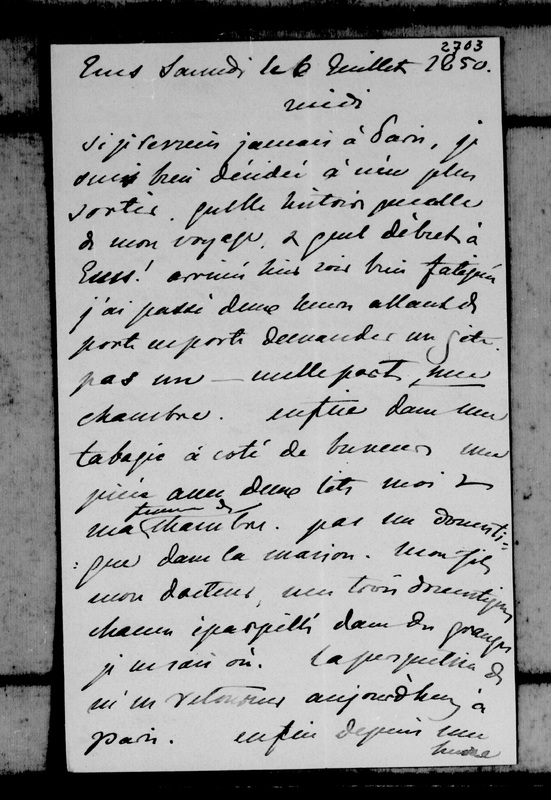 2703
Ems Samedi le 6 Juillet 1850.
midi
si je reviens jamais à Paris, je
suis bien décidée à n'en plus
sortir. quelle histoire que celle
de mon voyage, & quel début à
Ems! arrivée hier soir bien fatiguée
j'ai passé deux heures allant de
porte en porte demander un gîte.
pas un — nulle part, une
chambre. enfin dans une
tabagie à coté de buveurs une
pièce avec deux lits moi &
ma femme de chambre. pas un domesti=
=que dans la maison. mon fils
mon docteur, mes trois domestiques
chacun éparpillés dans des granges
je ne sais où. la perspective de
m'en retourner aujourd'huy à
paris. enfin depuis une
heure